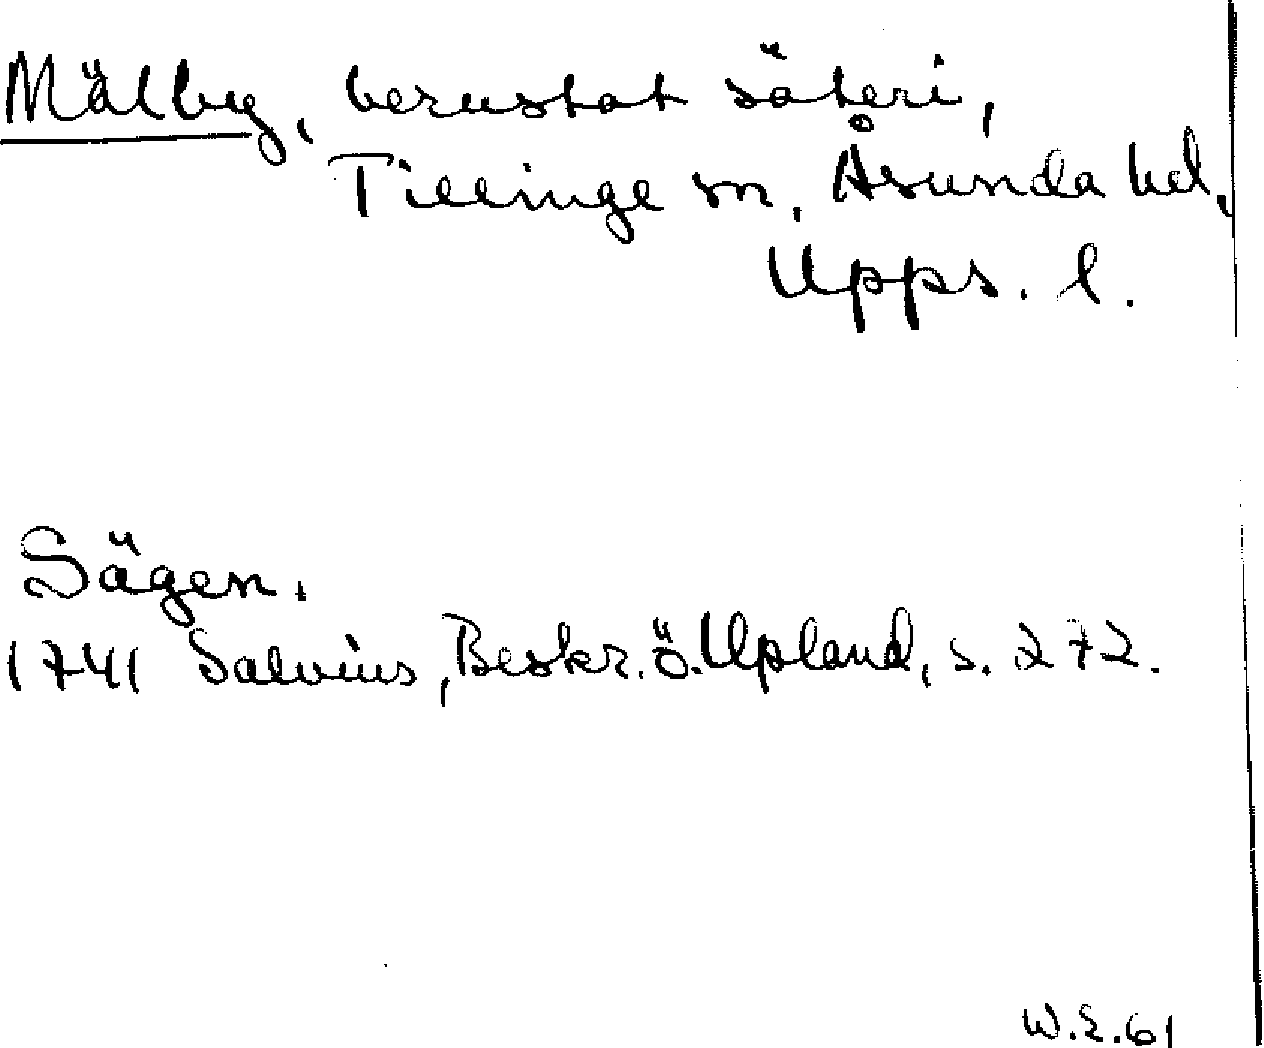 Mälby, berustat säteri,
Tillinge sn, Åsunda hd,
Upps. l.
Sägen.
1741 Salvius, Beskr. ö. Upland, s. 272.
W.E.61